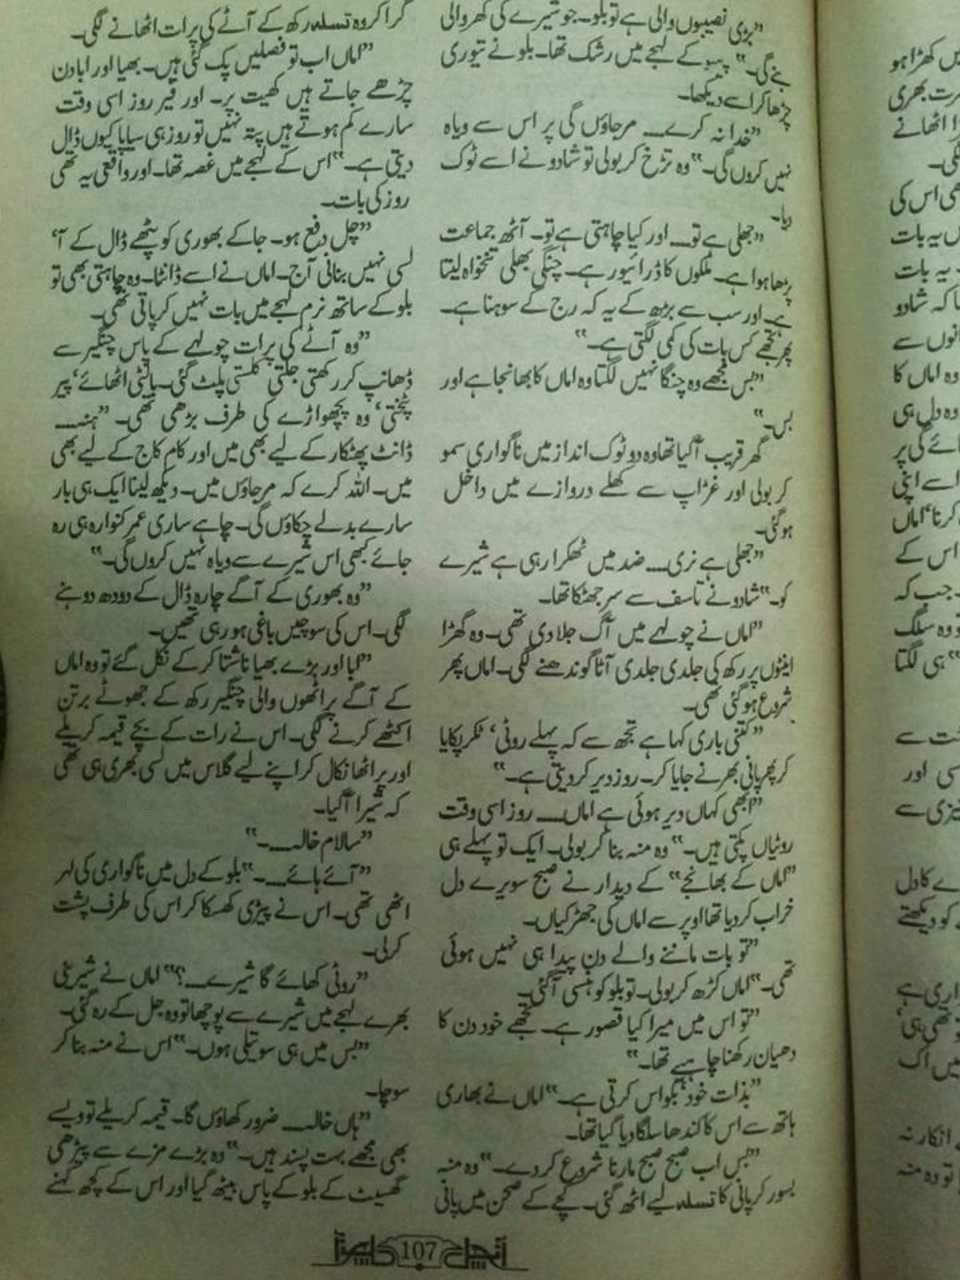 ”بڑی نصیبوں والی ہے تو بلو۔ جو شیرے کی گھر والی
بنے گی۔“ پپو کے لہجے میں رشک تھا۔ بلو نے تیوری
چڑھا کر اسے دیکھا۔
”خدا نہ کرے۔۔۔ مر جاؤں گی پر اس سے ویاہ
نہیں کروں گی۔“ وہ تڑخ کر بولی تو شادو نے اسے ٹوک
دیا۔
”جھلی ہے تو۔۔۔ اور کیا چاہتی ہے تو۔ آٹھ جماعت
پڑھا ہوا ہے۔ ٹرکوں کا ڈرائیور ہے۔ چنگی بھلی تنخواہ لیتا
ہے۔ اور سب سے بڑھ کے یہ کہ رج کے سوہنا ہے۔
پھر تجھے کس بات کی کمی لگتی ہے۔“
”بس مجھے وہ چنگا نہیں لگتا وہ اماں کا بھانجا ہے اور
بس۔“
گھر قریب آ گیا تھا وہ دو ٹوک انداز میں ناگواری سمو
کر بولی اور غڑاپ سے کھلے دروازے میں داخل
ہو گئی۔
”جھلی ہے نری۔۔۔ ضد میں ٹھکرا رہی ہے شیرے
کو۔“ شادو نے تاسف سے سر جھٹکا تھا۔
”اماں نے چولہے میں آگ جلا دی تھی۔ وہ گھڑا
اینٹوں پر رکھ کی جلدی جلدی آٹا گوندھنے لگی۔ اماں پھر
شروع ہو گئی تھی۔
”کتنی باری کہا ہے تجھ سے کہ پہلے روٹی‘ ٹکر پکایا
کر پھر پانی بھرنے جایا کر۔ روز دیر کر دیتی ہے۔“
”ابھی کہاں دیر ہوئی ہے اماں۔۔۔ روز اسی وقت
روٹیاں پکتی ہیں۔“ وہ منہ بنا کر بولی۔ ایک تو پہلے ہی
”اماں کے بھانجے“ کے دیدار نے صبح سویرے دل
خراب کر دیا تھا اوپر سے اماں کی جھڑکیاں۔
”تو بات ماننے والے دن پیدا ہی نہیں ہوئی
تھی۔“ اماں کڑھ کر بولی۔ تو بلو کو ہنسی آ گئی۔
”تو اس میں میرا کیا قصور ہے۔ تجھے خود دن کا
دھیان رکھنا چاہیے تھا۔“
”بذات خود‘ بکواس کرتی ہے۔“ اماں نے بھاری
ہاتھ سے اس کا کندھا سلگا دیا گیا تھا۔
”بس اب صبح صبح مارنا شروع کر دے۔“ وہ منہ
بسور کر پانی کا تسلہ لیے اٹھ گئی۔ کچے کے صحن میں پانی
گرا کر وہ تسلہ رکھ کے آٹے کی پرات اٹھانے لگی۔
”اماں اب تو فصلیں پک گئی ہیں۔ بھیا اور ابا دن
چڑھے جاتے ہیں کھیت پر۔ اور فیر روز اسی وقت
سارے کم ہوتے ہیں پتہ نہیں تو روز ہی سیاپا کیوں ڈال
دیتی ہے۔“ اس کے لہجے میں غصہ تھا۔ اور واقعی یہ تھی
روز کی بات۔
”چل دفع ہو۔ جا کے بھوری کو پٹھے ڈال کے آ‘
لسی نہیں بنانی آج۔ اماں نے اسے ڈانٹا۔ وہ چاہتی بھی تو
بلو کے ساتھ نرم لہجے میں بات نہیں کر پاتی تھی۔
”وہ آٹے کی پرات چولہے کے پاس چنگیر سے
ڈھانپ کر رکھتی جلتی‘ کلستی پلٹ گئی۔ بالٹی اٹھائے‘ پیر
پٹختی‘ وہ پچھواڑے کی طرف بڑھی تھی۔ ”ہنہ۔۔۔
ڈانٹ پھٹکار کے لیے بھی میں اور کام کاج کے لیے بھی
میں۔ اللہ کرے کہ مر جاؤں میں۔ دیکھ لینا ایک ہی بار
سارے بدلے چکاؤں گی۔ چاہے ساری عمر کنوارہ ہی رہ
جائے کبھی اس شیرے سے ویاہ نہیں کروں گی۔“
”وہ بھوری کے آگے چارہ ڈال کے دودھ دوہنے
لگی۔ اس کی سوچیں باغی ہو رہی تھیں۔
”ابا اور بڑے بھیا ناشتا کر کے نکل گئے تو وہ اماں
کے آگے پراٹھوں والی چنگیر رکھ کے جھوٹے برتن
اکٹھے کرنے لگی۔ اس نے رات کے بچے قیمہ کریلے
اور پراٹھا نکال کر اپنے لیے گلاس میں لسی بھری ہی تھی
کہ شیرا آ گیا۔
”سالام خالہ۔۔۔“
”آئے ہائے۔۔۔“ بلو کے دل میں ناگواری کی لہر
اٹھی تھی۔ اس نے پیڑی کھسکا کر اس کی طرف پشت
کر لی۔
”روٹی کھائے گا شیرے۔۔۔؟“ اماں نے شیرینی
بھرے لہجے میں شیرے سے پوچھا تو وہ جل کے رہ گئی۔
”بس میں ہی سوتیلی ہوں۔“ اس نے منہ بنا کر
سوچا۔
”ہاں خالہ۔۔۔ ضرور کھاؤں گا۔ قیمہ کریلے تو ویسے
بھی مجھے بہت پسند ہیں۔“ وہ بڑے مزے سے پیڑھی
گھسیٹ کے بلو کے پاس بیٹھ گیا اور اس کے کچھ کہنے
107